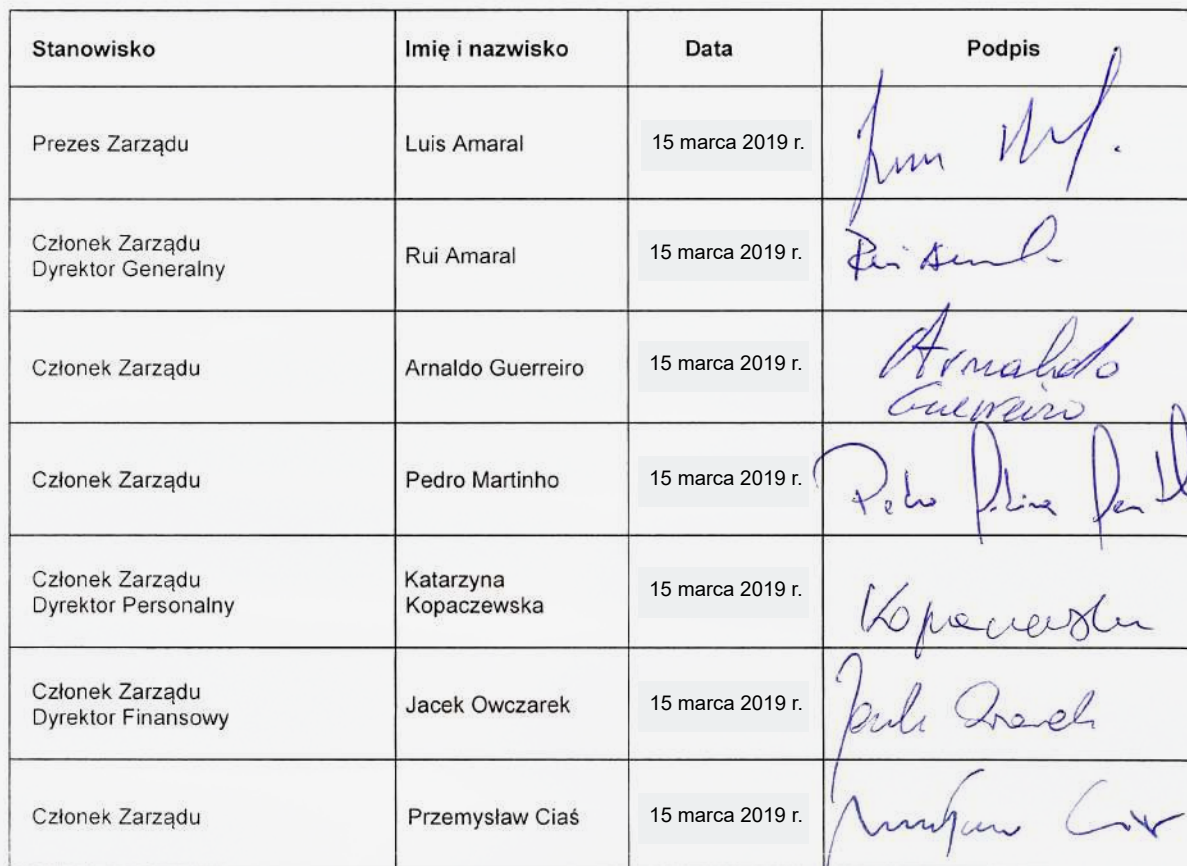 Stanowisko Imię i nazwisko Data Podpis
Prezes Zarządu Luis Amaral 15 marca 2019 r.
Członek Zarządu
Dyrektor Generalny Rui Amaral 15 marca 2019 r.
Członek Zarządu Arnaldo Guerreiro 15 marca 2019 r. Arnaldo
Guerreiro
Członek Zarządu Pedro Martinho 15 marca 2019 r. Pedro
Członek Zarządu
Dyrektor Personalny Katarzyna
Kopaczewska 15 marca 2019 r.
Członek Zarządu
Dyrektor Finansowy Jacek Owczarek 15 marca 2019 r.
Członek Zarządu Przemysław Ciaś 15 marca 2019 r.